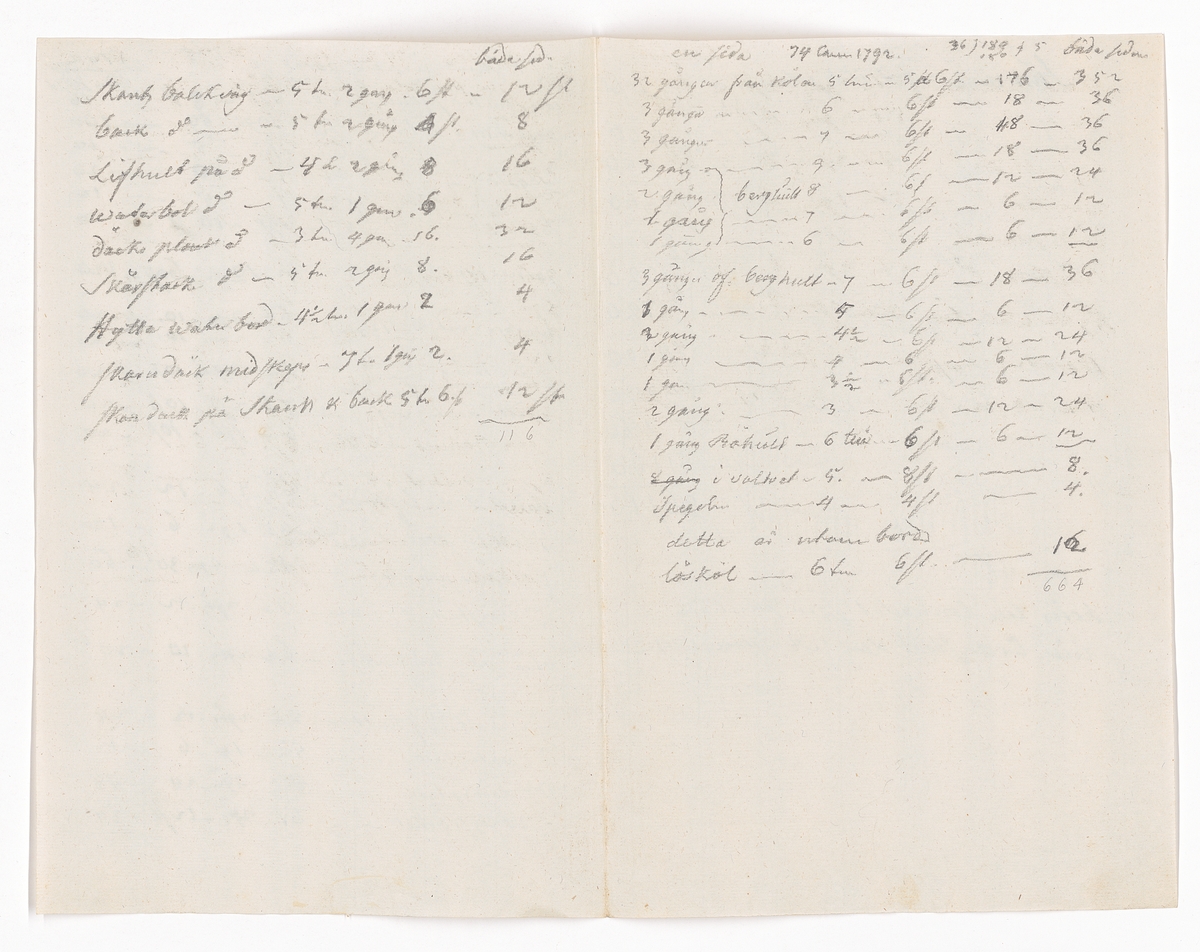 båda sid.
Skants balckväg — 5 tu. 2 gång 6 st — 12 st
back d° — 5 tu 2 gång 4 st. 8
Lifhult på d° — 4½ 2 gång 8 16
waterbol d° — 5 tu. 1 gån. 6 12
däcks plank d° — 3 tu 4 gån. 16. 32
Skärstock d° — 5 tu 2 gång 8. 16
Hytte water bord — 4½ tu. 1 gån 2 4
skarndäck midskeps — 7 tu 1 gång 2. 4
skandäck på Skants & back 5 tu 6 st 12 st
= 116
en sida 74 Cann 1792. 36 ) 189 ( 5 båda sidor
180
32 gångor från kölen 5 tum — 5 à 6 st — 176 — 352
3 gångor — 6 6 st — 18 — 36
3 gångor — 7 — 6 st — 18 — 36
3 gång — 9. — 6 st — 18 — 36
2 gång berghult 8 — 6 st — 12 — 24
1 gång — 7 6 st — 6 — 12
1 gång — 6 6 st — 6 — 12
3 gångor öf. berghult — 7 — 6 st — 18 — 36
1 gång — 5 — 6 st — 6 — 12
2 gång — 4½ — 6 st — 12 — 24
1 gång — 4 — 6 — 6 — 12
1 gån. — 3½ — 6 st. — 6 — 12
2 gång — 3 — 6 st — 12 — 24
1 gång Råhult — 6 tum — 6 st — 6 — 12
2 gång i valtvet — 5. — 8 st — 8.
Spegelen — 4 — 4 st — 4.
detta är utom bord
löskol — 6 tum 6 st. — 12
664